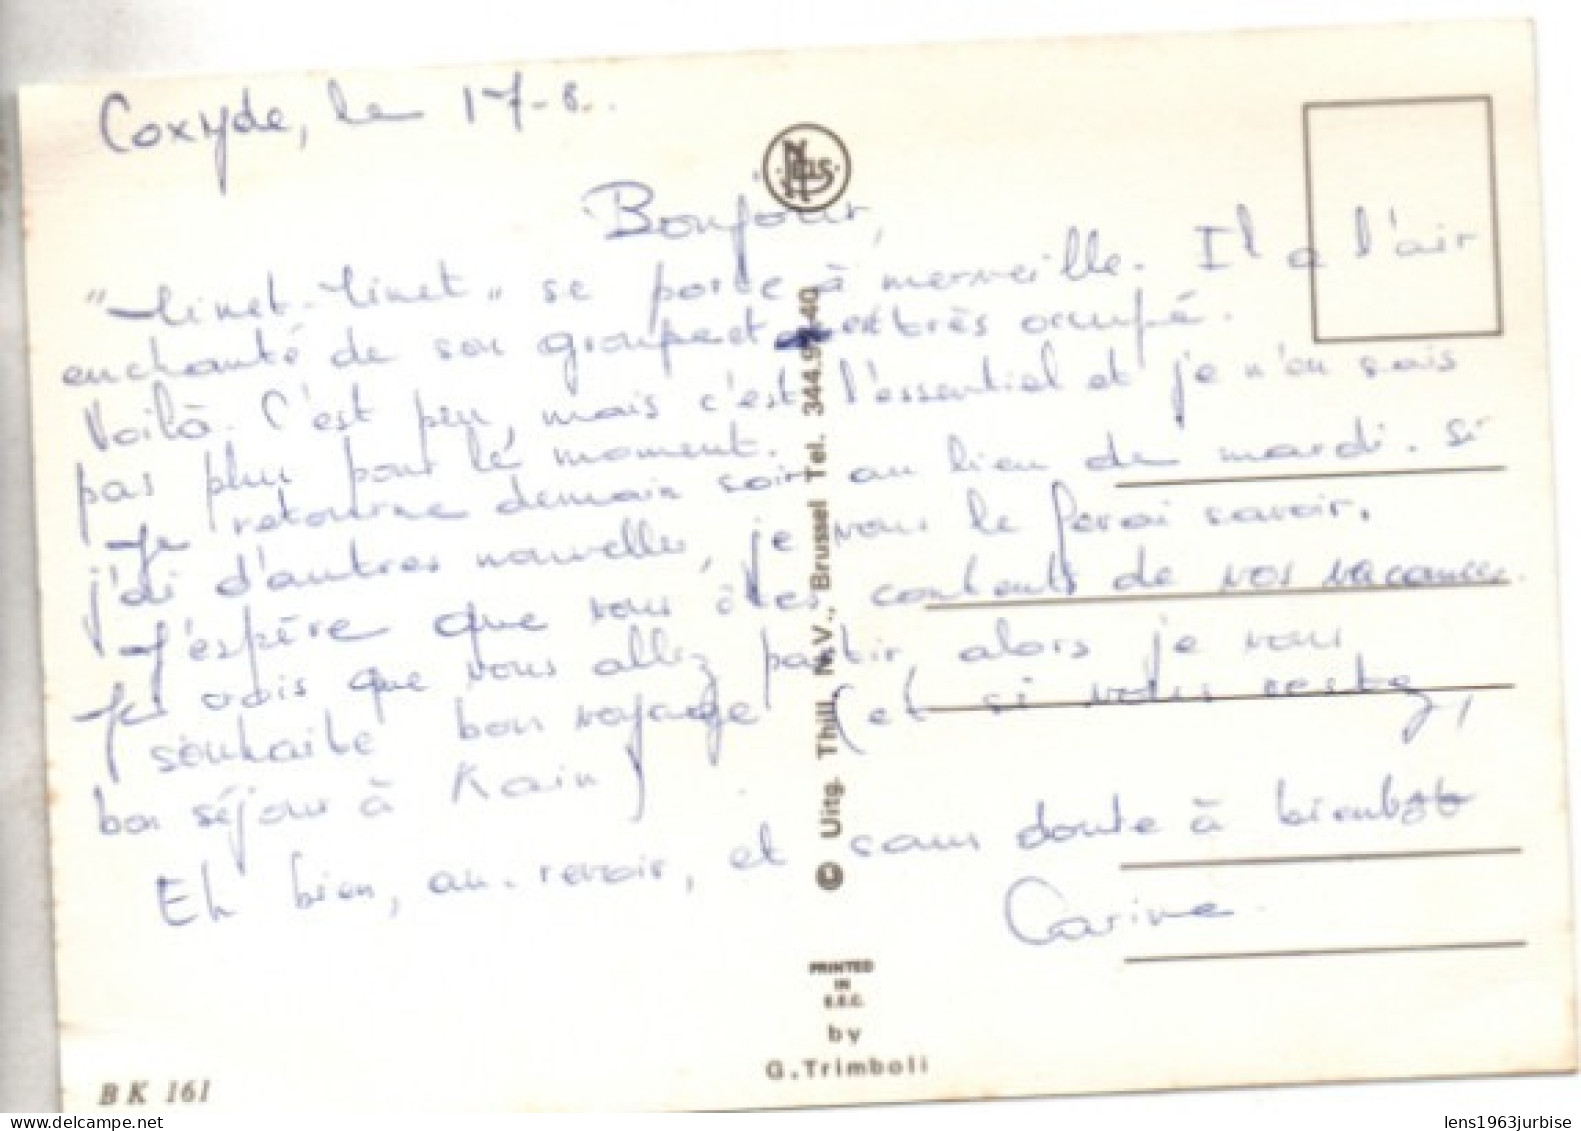 Coxyde, le 17-8.
Bonjour,
"Minet-Minet" se porte à merveille. Il a l'air
enchanté de son groupe et est très occupé.
Voilà. C'est peu, mais c'est l'essentiel et je n'en sais
pas plus pour le moment.
Je retourne demain soir au lieu de mardi. Si
j'ai d'autres nouvelles, je vous le ferai savoir.
J'espère que vous êtes contents de vos vacances.
Je crois que vous allez partir, alors je vous
souhaite bon voyage (et si vous restez,
bon séjour à Kain)
Eh bien, au-revoir, et sans doute à bientôt
Carine.
© Uitg. Thill, N.V., Brussel Tel. 344.9 40
PRINTED
IN
E.E.C.
by
G. Trimboli
BK 161
lens1963jurbise